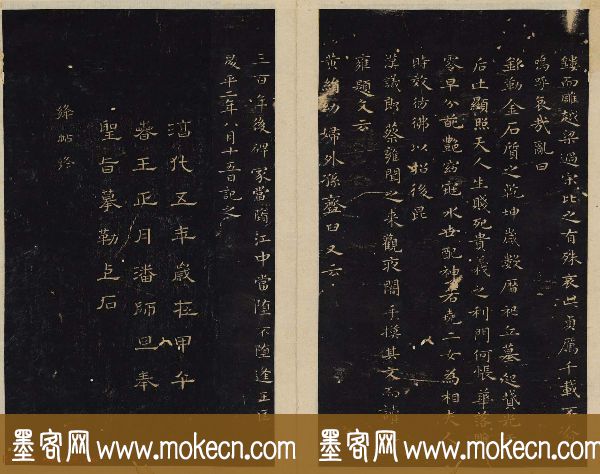 鏤而雕越梁過宋比之有殊哀此貞厲千載不渝
嗚呼哀哉亂曰
銘勒金石質之乾坤歲數曆祀丘墓起墳光
后土顯照天人生賤死貴義之利門何悵華落雕
零早分葩艷窈窕永世配神若堯二女為相夫人
時效彷彿以招後昆
漢議郎蔡雍聞之來觀夜闇手摸其文而讀
雍題文云
黃絹幼婦外孫齏臼又云
三百年後碑冢當墮江中當墮不墮逢王叵
昇平二年八月十五日記之
淳化五年歲在甲午
春王正月潘師旦奉
聖旨摹勒上石
絳帖終
墨客网 www.mokecn.com 墨客网 www.mokecn.com